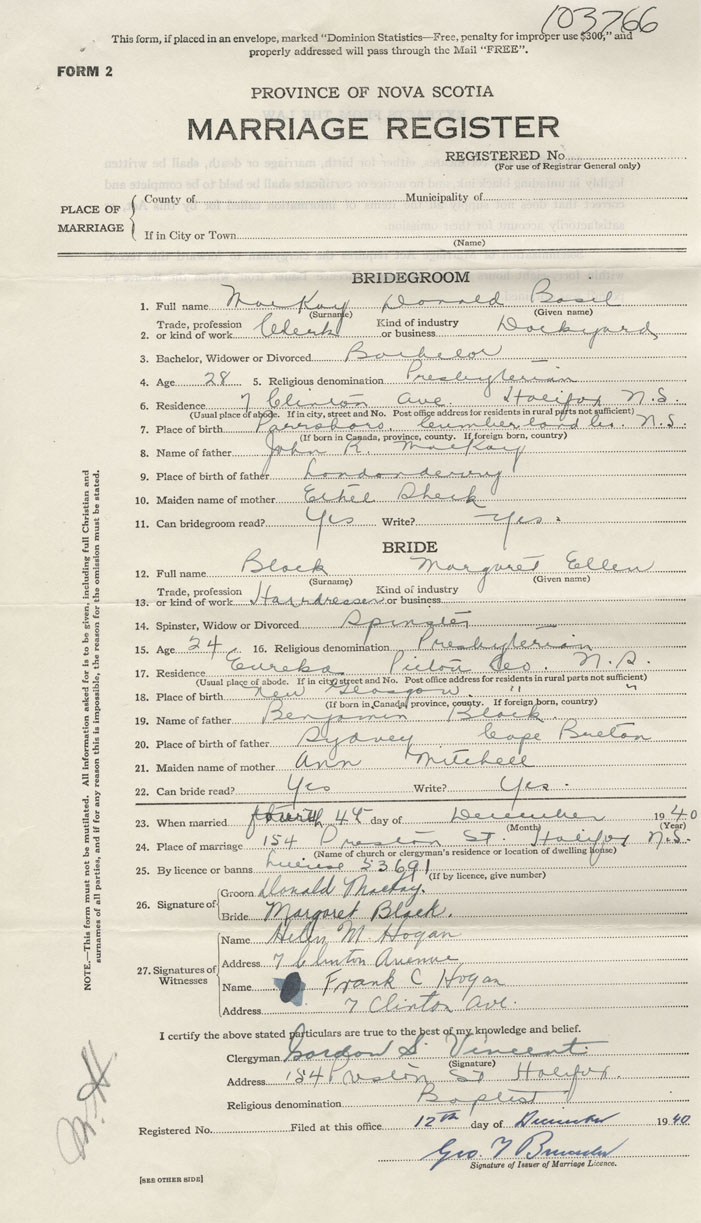 103766
This form, if placed in an envelope, marked "Dominion Statistics—Free, penalty for improper use $300," and
properly addressed will pass through the Mail "FREE".
FORM 2
PROVINCE OF NOVA SCOTIA
MARRIAGE REGISTER
REGISTERED No.
(For use of Registrar General only)
PLACE OF MARRIAGE
County of Municipality of
If in City or Town
(Name)
BRIDEGROOM
1. Full name MacKay Donald Basil
(Surname) (Given name)
2. Trade, profession or kind of work Clerk Kind of industry or business Dockyard
3. Bachelor, Widower or Divorced Bachelor
4. Age 28 5. Religious denomination Presbyterian
6. Residence 7 Clinton Ave. Halifax N.S.
(Usual place of abode. If in city, street and No. Post office address for residents in rural parts not sufficient)
7. Place of birth Parrsboro, Cumberland Co. N.S.
(If born in Canada, province, county. If foreign born, country)
8. Name of father John R. MacKay
9. Place of birth of father Londonderry
10. Maiden name of mother Ethel
11. Can bridegroom read? Yes Write? Yes.
BRIDE
12. Full name Black Margaret Ellen
(Surname) (Given name)
13. Trade, profession or kind of work Hairdresser Kind of industry or business
14. Spinster, Widow or Divorced Spinster
15. Age 24 16. Religious denomination Presbyterian
17. Residence Eureka Pictou Co. N.S.
(Usual place of abode. If in city street and No. Post office address for residents in rural parts not sufficient)
18. Place of birth New Glasgow " "
(If born in Canada, province, county. If foreign born, country)
19. Name of father Benjamin Black.
20. Place of birth of father Sydney Cape Breton
21. Maiden name of mother Ann Mitchell
22. Can bride read? Yes Write? Yes.
23. When married fourth 4th day of December 1940
(Month) (Year)
24. Place of marriage 154 Preston St. Halifax N.S.
(Name of church or clergyman's residence or location of dwelling house)
25. By licence or banns License 53691
(If by licence, give number)
26. Signature of
Groom Donald Mackay.
Bride Margaret Black.
27. Signatures of Witnesses
Name Helen M Hogan
Address 7 Clinton Avenue
Name Frank C Hogan
Address 7 Clinton Ave.
I certify the above stated particulars are true to the best of my knowledge and belief.
Clergyman Gordon S. Vincent
(Signature)
Address 154 Preston St Halifax.
Religious denomination Baptist
Registered No. Filed at this office 12th day of December 1940
Geo.
Signature of Issuer of Marriage Licence.
[SEE OTHER SIDE]
NOTE.—This form must not be mutilated. All information asked for is to be given, including full Christian and
surnames of all parties, and if for any reason this is impossible, the reason for the omission must be stated.